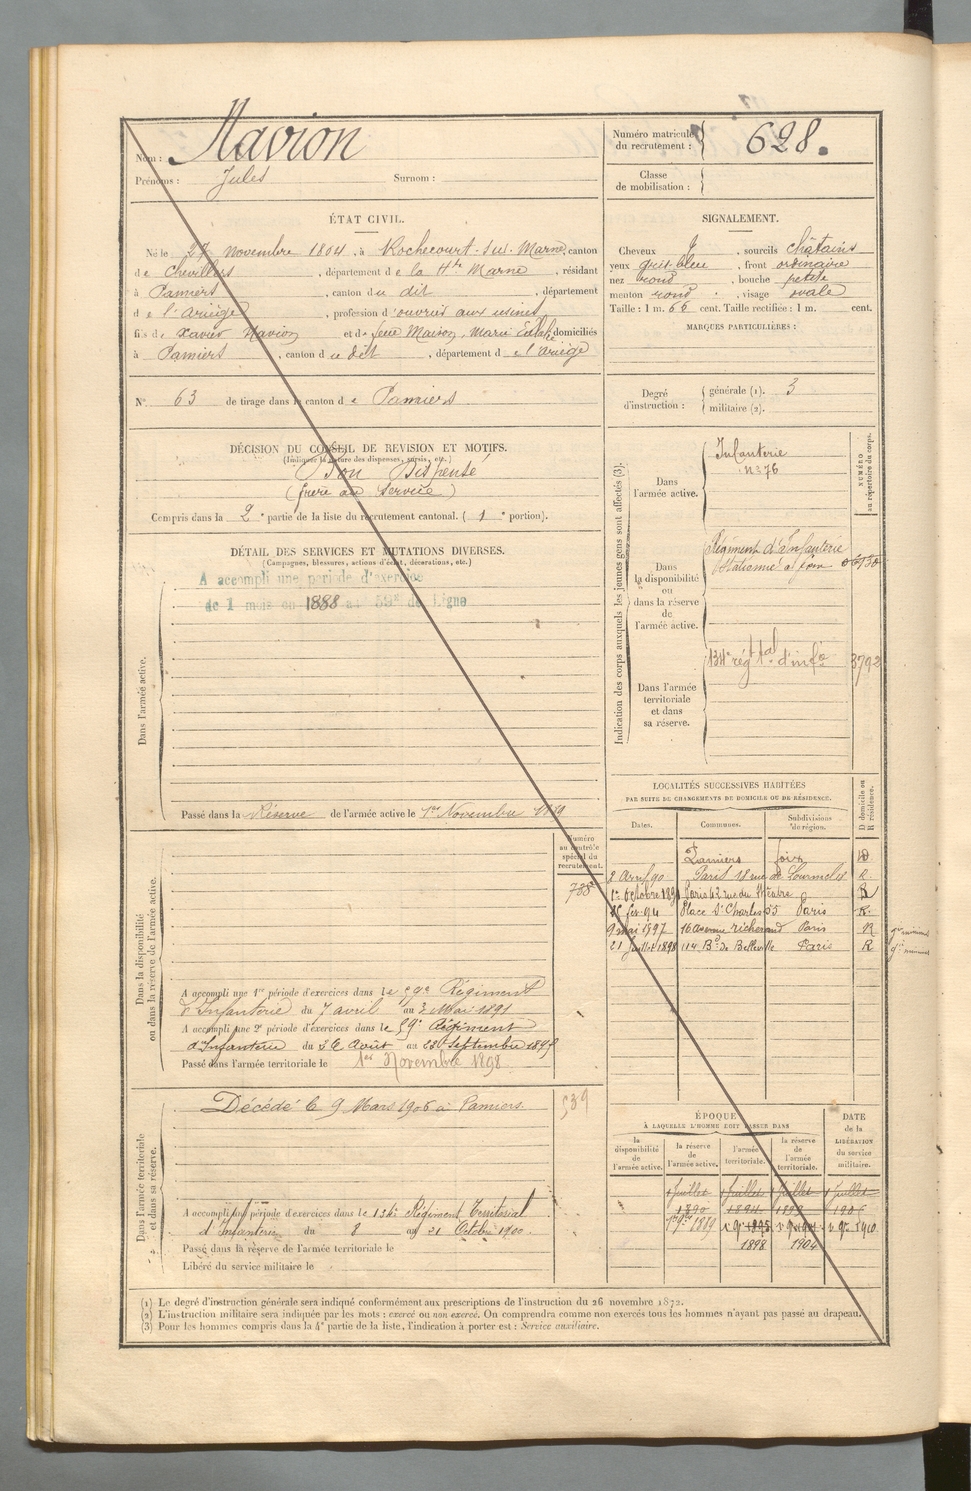 Nom : Navion
Prénoms : Jules Surnom :
Numéro matricule du recrutement : 628.
Classe de mobilisation :
ÉTAT CIVIL.
Né le 27 Novembre 1864, à Rochecourt-sur-Marne, canton
de Chevillers, département de la Hte Marne, résidant
à Pamiers, canton du dit, département
de l'Ariège, profession d'ouvrier aux usines,
fils de Xavier Navion et de feue Maison, Marie domiciliés
à Pamiers, canton du dit, département de l'Ariège
N° 63 de tirage dans le canton de Pamiers
SIGNALEMENT.
Cheveux, sourcils châtains
yeux gris-bleu, front ordinaire
nez rond, bouche petite
menton rond, visage ovale
Taille : 1 m. 66 cent. Taille rectifiée : 1 m. cent.
MARQUES PARTICULIÈRES :
Degré d'instruction : générale (1). 3
militaire (2).
DÉCISION DU CONSEIL DE REVISION ET MOTIFS.
(Indiquer la nature des dispenses, sursis, etc.)
Bon Dispensé
(frère au service)
Compris dans la 2e partie de la liste du recrutement cantonal. (1e portion).
DÉTAIL DES SERVICES ET MUTATIONS DIVERSES.
(Campagnes, blessures, actions d'éclat, décorations, etc.)
Dans l'armée active.
A accompli une période d'exercice
de 1 mois en 1888 au 59e de Ligne
Passé dans la Réserve de l'armée active le 1er Novembre 1889
Indication des corps auxquels les jeunes gens sont affectés (3).
NUMÉRO au répertoire du corps.
Dans l'armée active.
Infanterie
n° 76
Dans la disponibilité ou dans la réserve de l'armée active.
Régiment d'Infanterie
Stationné à Foix
Dans l'armée territoriale et dans sa réserve.
134e régt tal d'infie 3792
LOCALITÉS SUCCESSIVES HABITÉES
PAR SUITE DE CHANGEMENTS DE DOMICILE OU DE RÉSIDENCE.
Dates. Communes. Subdivisions de région. D domicile ou R résidence.
Pamiers Foix D
2 Avril 90 Paris 18 rue de Lourmels R
1er octobre 1891 Paris 42 rue du Théatre R
fév. 94 Place St Charles 55 Paris R
9 mai 1897 16 avenue Richerand Paris R
21 Juillet 1898 114 Bd de Belleville Paris R
Dans la disponibilité ou dans la réserve de l'armée active.
Numéro au contrôle spécial du recrutement.
A accompli une 1re période d'exercices dans le 59e Régiment
d'Infanterie du 7 avril au 3 Mai 1891
A accompli une 2e période d'exercices dans le 59e Régiment
d'Infanterie du 26 Août au Septembre
Passé dans l'armée territoriale le 1er Novembre 1898
Dans l'armée territoriale et dans sa réserve.
Décédé le 9 Mars 1906 à Pamiers. 539
A accompli une période d'exercices dans le 134e Régiment Territorial
d'Infanterie du 8 au 21 Octobre 1900.
Passé dans la réserve de l'armée territoriale le
Libéré du service militaire le
ÉPOQUE
À LAQUELLE L'HOMME DOIT PASSER DANS
DATE de la LIBÉRATION du service militaire.
la disponibilité de l'armée active. la réserve de l'armée active. l'armée territoriale. la réserve de l'armée territoriale.
1 Juillet 1 Juillet 1 Juillet 1 Juillet
1890 1906
1er 9bre 1889 1 9bre 1895 1 9bre 1 9bre 1910
1898 1904
(1) Le degré d'instruction générale sera indiqué conformément aux prescriptions de l'instruction du 26 novembre 1872.
(2) L'instruction militaire sera indiquée par les mots : exercé ou non exercé. On comprendra comme non exercés tous les hommes n'ayant pas passé au drapeau.
(3) Pour les hommes compris dans la 4e partie de la liste, l'indication à porter est : Service auxiliaire.